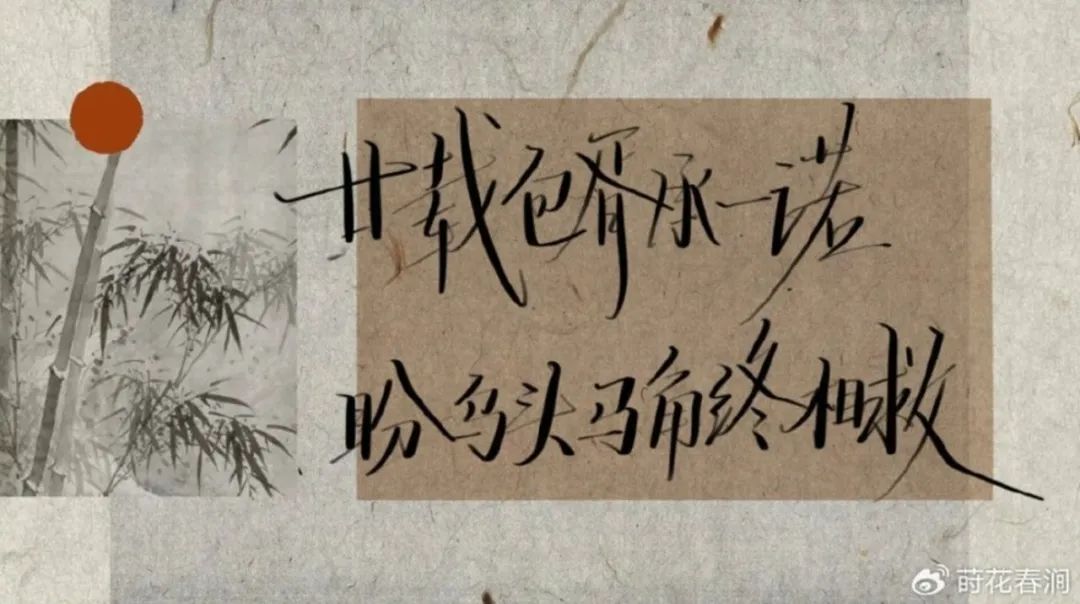 廿载包胥承一诺
盼乌头马角终相救
莳花春涧